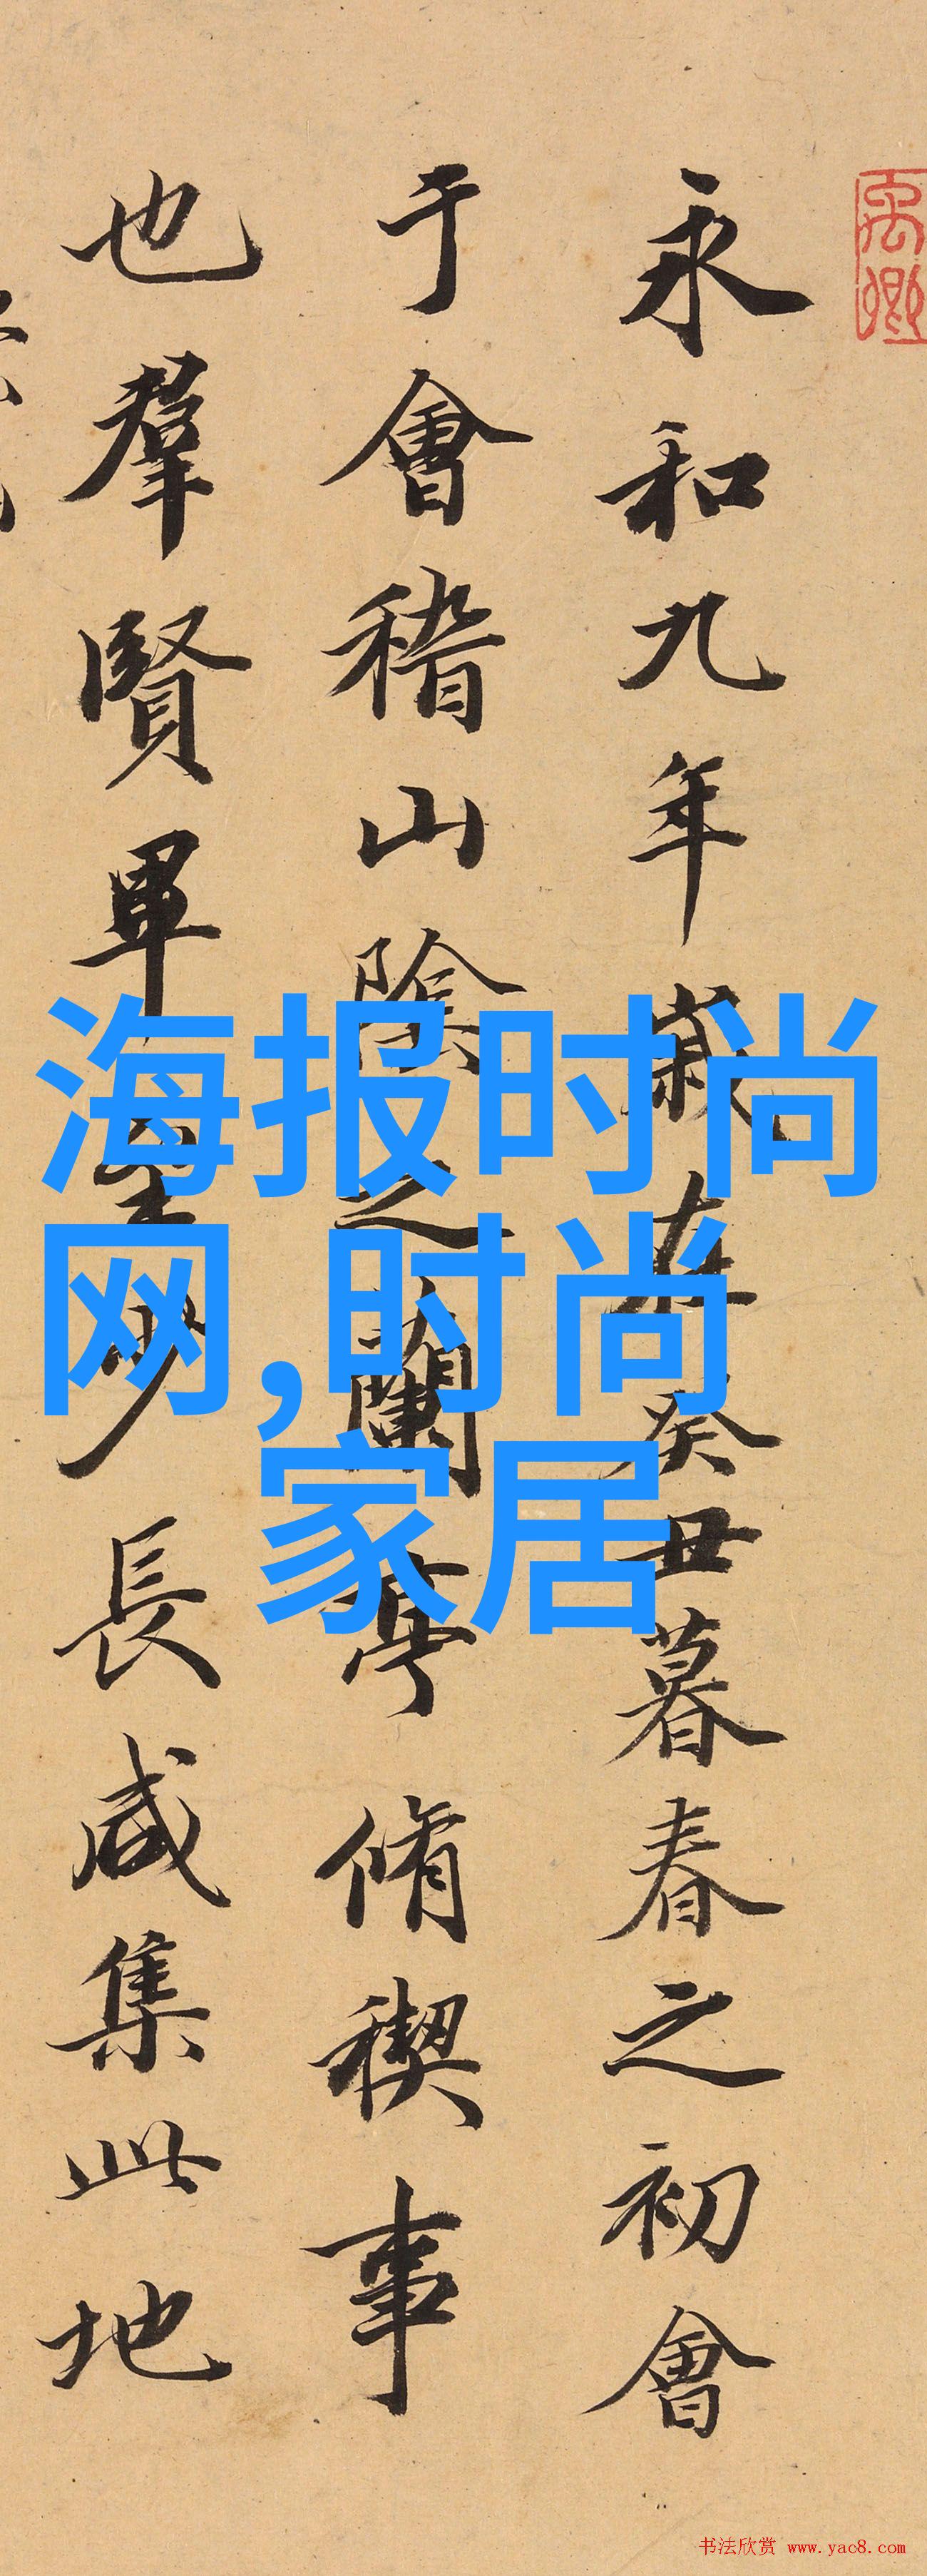 永和九年歲在癸丑暮春之初會
于會稽山陰之蘭亭脩稧事
也羣賢畢至少長咸集此地
禹卿
海报时尚
网,时尚
家居
书法欣赏 www.yac8.com